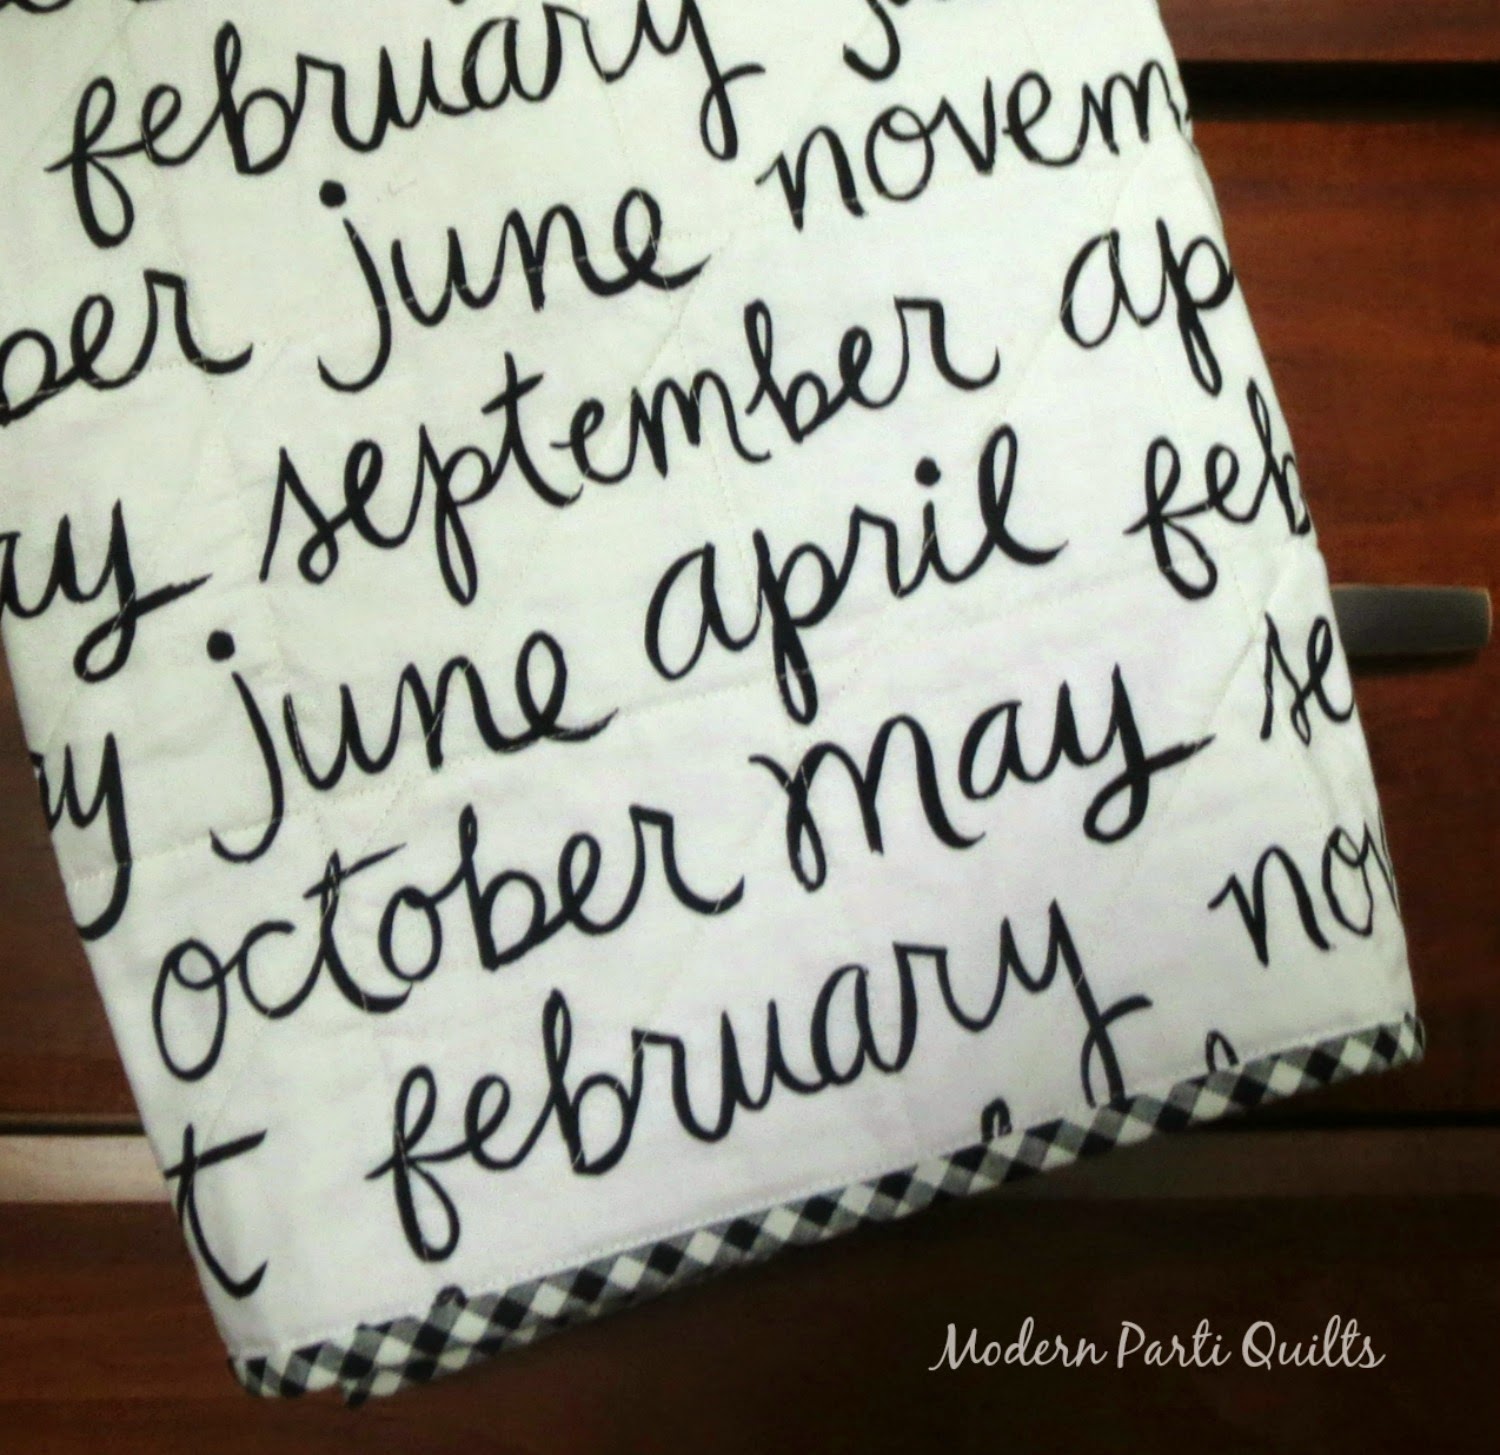 february j
ber june novem
ay september ap
ay june april feb
october may se
t february nov
Modern Parti Quilts